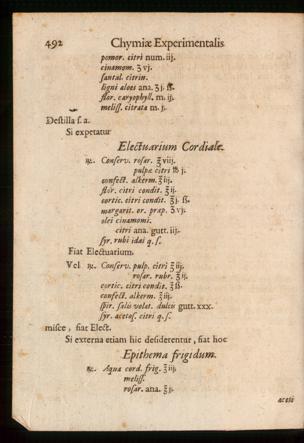 492 Chymiæ Experimentalis
pomor. citri num. iij.
cinamom. ʒ vj.
santal. citrin.
ligni aloes ana. ʒj. ß.
flor. caryophyll. m. ij.
meliss. citrata m. j.
Destilla s. a.
Si expetatur
Electuarium Cordiale.
℞. Conserv. rosar. ℥ viij.
pulpæ citri ℔ j.
confect. alkerm. ℥ iij.
flor. citri condit. ℥ ij.
cortic. citri condit. ℥j. ß.
margarit. or. præp. ʒ vj.
olei cinamomi.
citri ana. gutt. iij.
syr. rubi idæi q. s.
Fiat Electuarium.
Vel ℞. Conserv. pulp. citri ℥ iij.
rosar. rubr. ℥ ij.
cortic. citri condit. ℥ ß.
confect. alkerm. ℥ iij.
spir. salis volat. dulcis gutt. xxx.
syr. acetos. citri q. s.
misce, fiat Elect.
Si externa etiam hic desiderentur, fiat hoc
Epithema frigidum.
℞. Aquæ cord. frig. ℥ iij.
meliss.
rosar. ana. ℥ j.
aceti